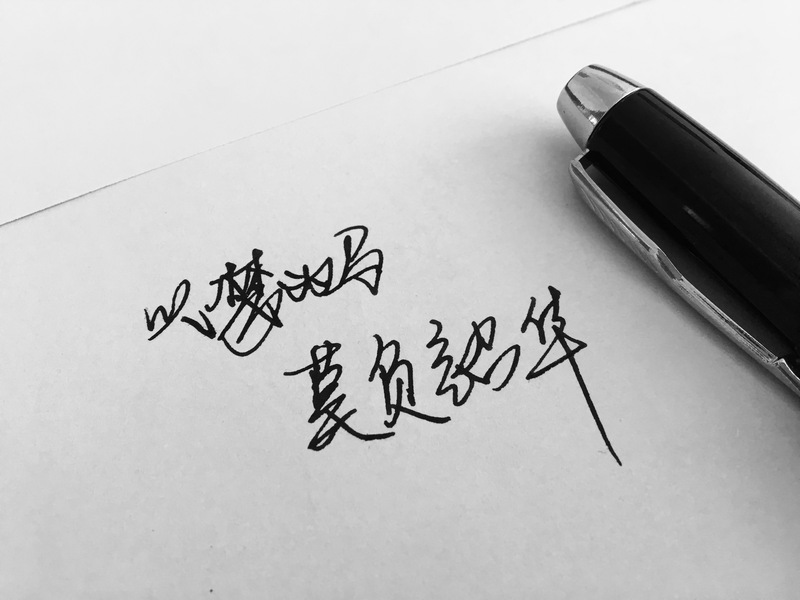 以梦为马
莫负韶华